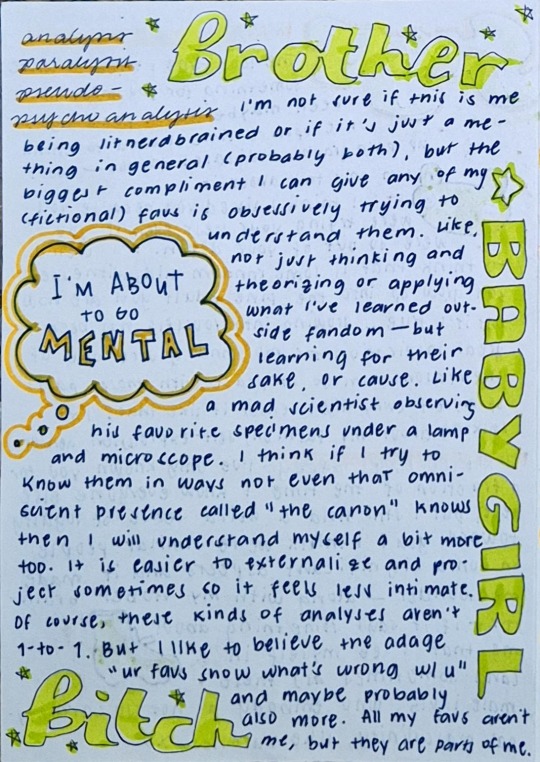 analysis
paralysis
pseudo-
psychoanalysis
Brother
I'm not sure if this is me
being litnerdbrained or if it's just a me-
thing in general (probably both), but the
biggest compliment I can give any of my
(fictional) favs is obsessively trying to
understand them. Like,
not just thinking and
theorizing or applying
what I've learned out-
side fandom—but
learning for their
sake, or cause. Like
a mad scientist observing
his favorite specimens under a lamp
and microscope. I think if I try to
know them in ways not even that omni-
scient presence called "the canon" knows
then I will understand myself a bit more
too. It is easier to externalize and pro-
ject sometimes so it feels less intimate.
Of course, these kinds of analyses aren't
1-to-1. But I like to believe the adage
"ur favs show what's wrong w/ u"
and maybe probably
also more. All my favs aren't
me, but they are parts of me.
I'M ABOUT
TO GO
MENTAL
BABYGIRL
Bitch